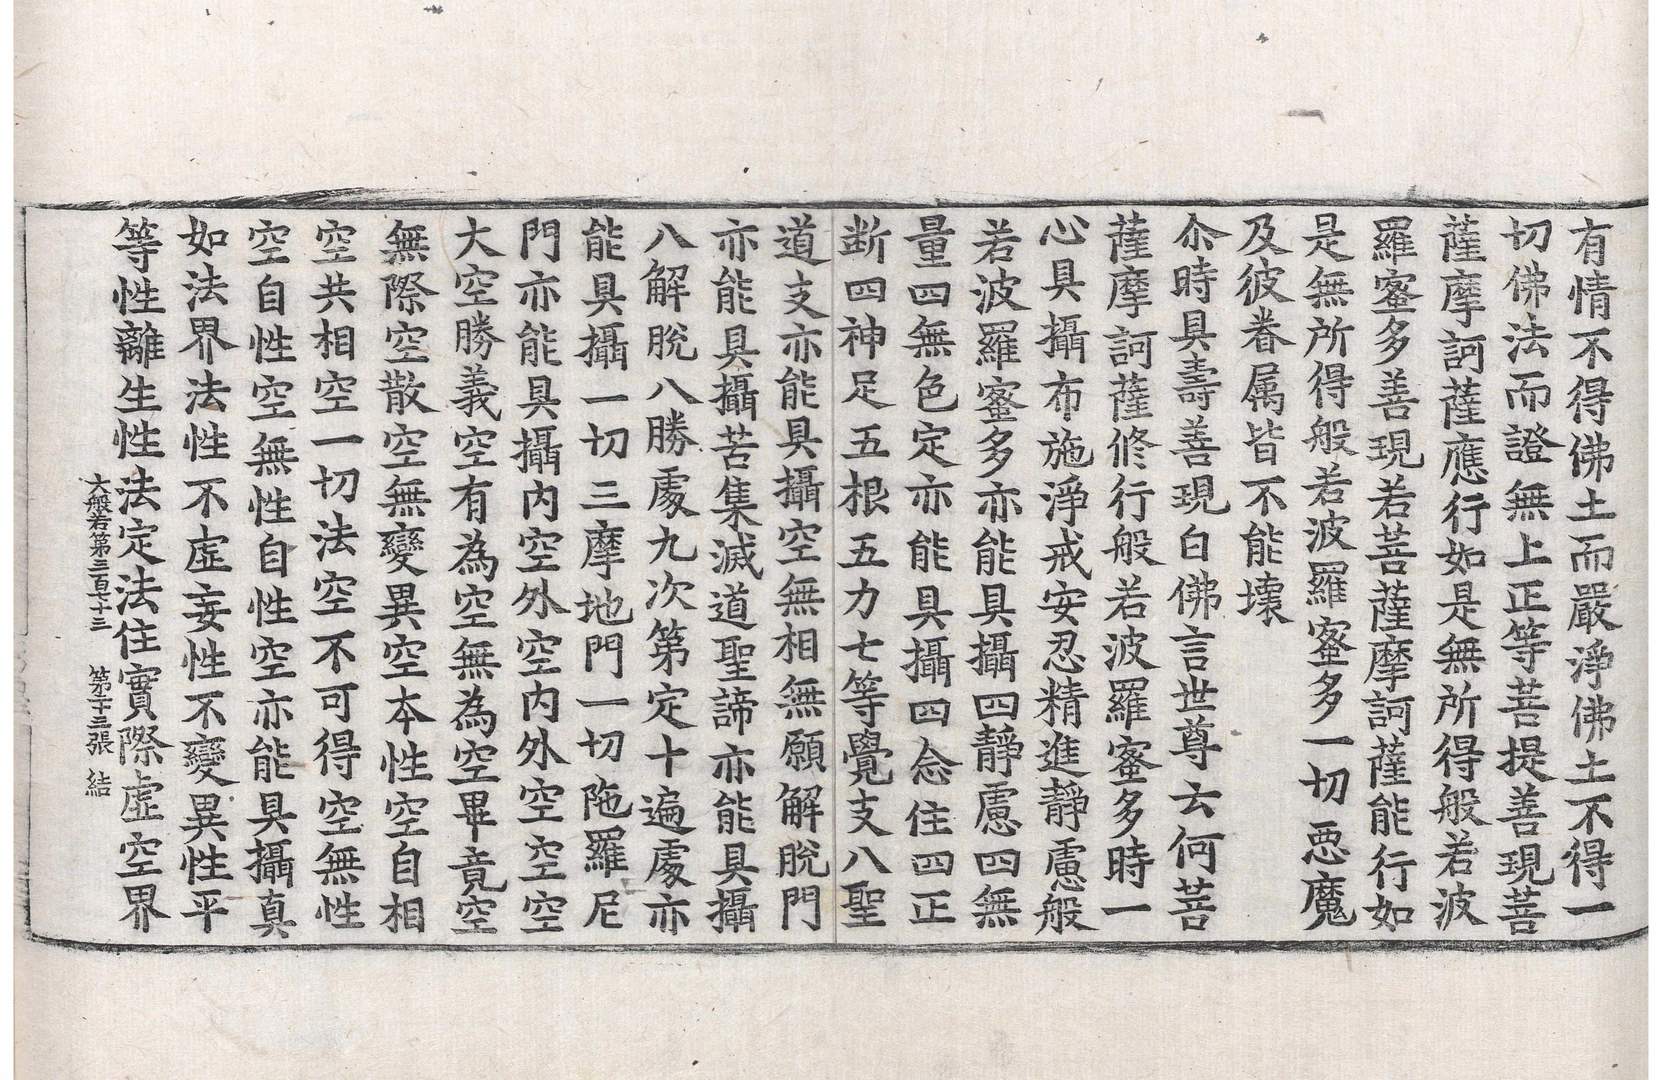 有情不得佛土而嚴淨佛土不得一
切佛法而證無上正等菩提善現菩
薩摩訶薩應行如是無所得般若波
羅蜜多善現若菩薩摩訶薩能行如
是無所得般若波羅蜜多一切惡魔
及彼眷属皆不能壞
尒時具壽善現白佛言世尊云何菩
薩摩訶薩修行般若波羅蜜多時一
心具攝布施淨戒安忍精進靜慮般
若波羅蜜多亦能具攝四靜慮四無
量四無色定亦能具攝四念住四正
断四神足五根五力七等覺支八聖
道支亦能具攝空無相無願解脫門
亦能具攝苦集滅道聖諦亦能具攝
八解脫八勝處九次第定十遍處亦
能具攝一切三摩地門一切陁羅尼
門亦能具攝內空外空內外空空空
大空勝義空有為空無為空畢竟空
無際空散空無變異空本性空自相
空共相空一切法空不可得空無性
空自性空無性自性空亦能具攝真
如法界法性不虛妄性不變異性平
等性離生性法定法住實際虛空界
大般若第三百七十三 第二十三張 結